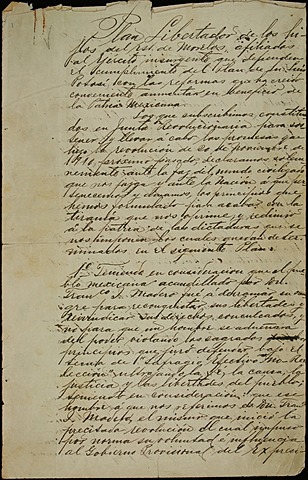 Plan Libertador de los hi-
jos del Est. de Morelos, afiliados
al Ejército insurgente que defienden
el cumplimiento del Plan de San Luis
Potosí, con las reformas que ha creido
conveniente aumentar en beneficio de
la Patria Mexicana.
Los que subscribimos, constitui-
dos en Junta Revolucionaria para sos-
tener y llevar a cabo las promesas que
hizo la revolucion de 20 de Noviembre de
1910, próximo pasado, declaramos solem-
nemente ante la faz del mundo civilizado
que nos juzga y ante la Nacion a que
pertenecemos y amamos, los principios que
hemos formulado para acabar con la
tiranía que nos oprime y redimir
a la patria de las dictaduras que se
nos imponen las cuales quedan deter-
minadas en el siguiente Plan:
1º Teniendo en consideracion que el pue-
blo mexicano acaudillado por Don
Franco I. Madero fué a derramar su san-
gre para reconquistar sus libertades y
reivindicar sus derechos conculcados, y
no para que un hombre se adueñara
del poder violando los sagrados
principios que juró defender bajo el
lema de "Sufragio Efectivo" "No Ree-
leccion", ultrajando la fé, la causa, la
justicia y las libertades del pueblo;
teniendo en consideracion: que ese
hombre a que nos referimos es Don Franco
I. Madero, el mismo que inició la
precitada revolucion el cual impuso
por norma su voluntad é influencia
al Gobierno Provisional del Ex presi-